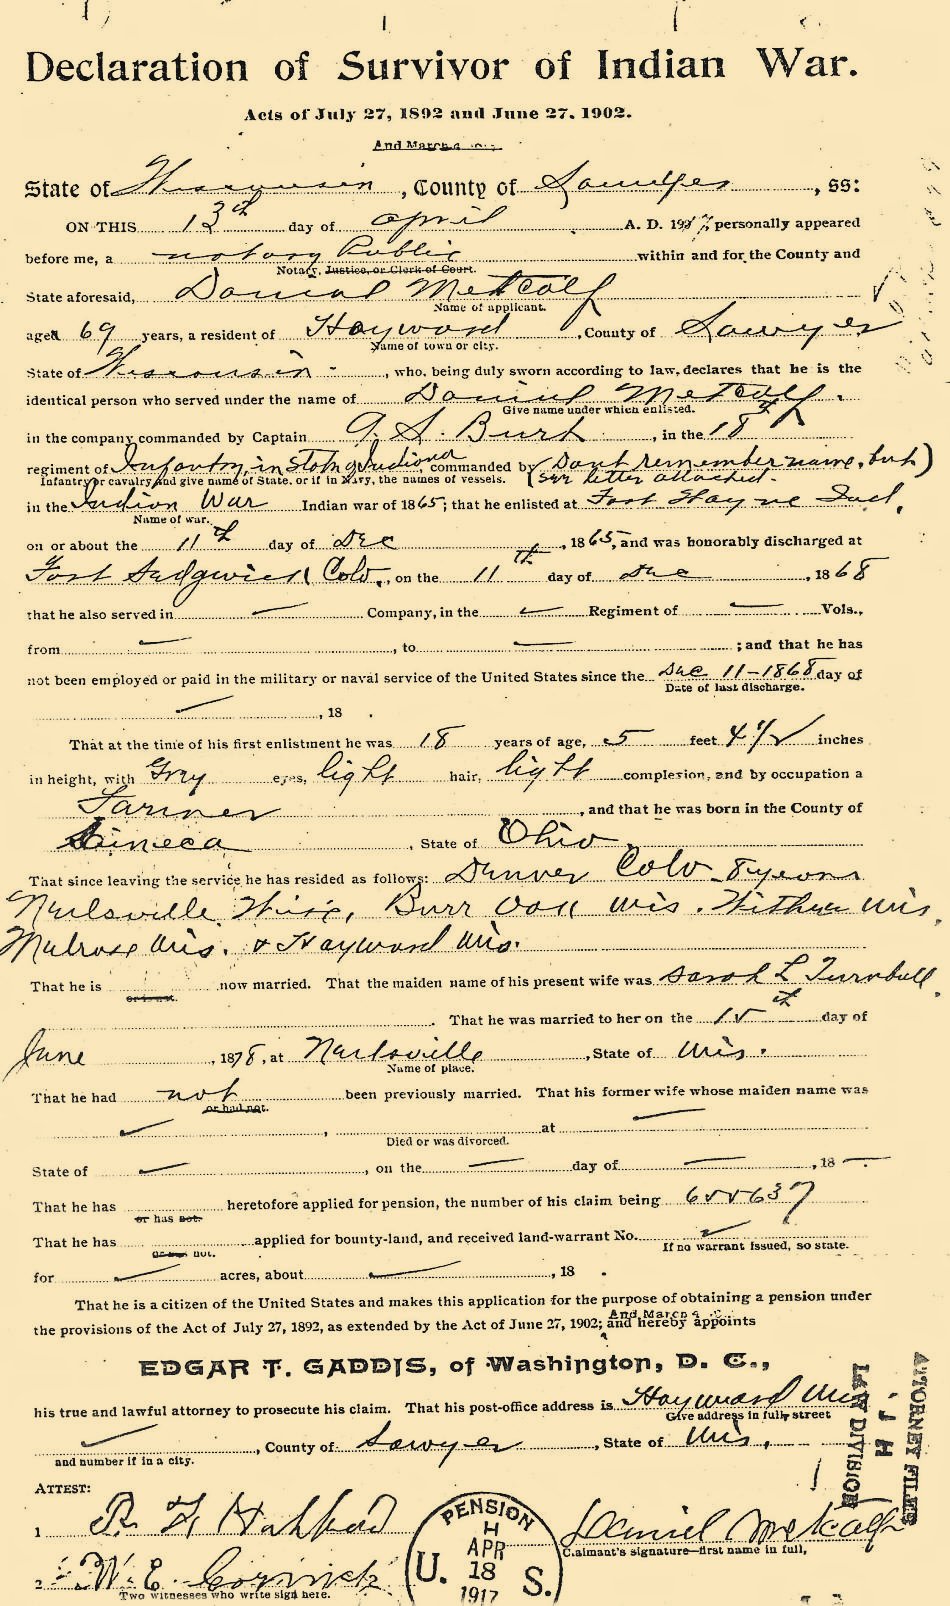 Declaration of Survivor of Indian War.
Acts of July 27, 1892 and June 27, 1902.
And March 4
State of Wisconsin, County of Sawyer, ss:
ON THIS 13th day of april A. D. 1917, personally appeared
before me, a notary Public within and for the County and
Notary, Justice, or Clerk of Court.
State aforesaid, Daniel Metcalf
Name of applicant.
aged 69 years, a resident of Hayward, County of Sawyer
Name of town or city.
State of Wisconsin, who, being duly sworn according to law, declares that he is the
identical person who served under the name of Daniel Metcalf.
Give name under which enlisted.
in the company commanded by Captain A. S. Burt, in the 18th
regiment of Infantry, in State of Indiana, commanded by (Dont remember name, but)
Infantry or cavalry and give name of State, or if in Navy, the names of vessels. (see letter attached.
in the Indian War Indian war of 1865; that he enlisted at Fort Wayne Ind.,
Name of war.
on or about the 11th day of Dec, 1865, and was honorably discharged at
Fort Sedgwick Colo., on the 11th day of Dec, 1868
that he also served in — Company, in the — Regiment of — Vols.,
from —, to — ; and that he has
not been employed or paid in the military or naval service of the United States since the Dec 11-1868 day of
Date of last discharge.
—, 18 .
That at the time of his first enlistment he was 18 years of age, 5 feet 4 1/2 inches
in height, with Grey eyes, light hair, light complexion, and by occupation a
Farmer, and that he was born in the County of
Seneca, State of Ohio.
That since leaving the service he has resided as follows: Denver Colo 8 years
Neilsville Wis., Burr Oak Wis. Withee Wis.
Melrose Wis. & Hayward Wis.
That he is now married. That the maiden name of his present wife was Sarah L Turnbull.
or is not.
That he was married to her on the 15th day of
June, 1878, at Neilsville, State of Wis.
Name of place.
That he had not been previously married. That his former wife whose maiden name was
or had not.
—, at —
Died or was divorced.
State of —, on the — day of —, 18 —.
That he has heretofore applied for pension, the number of his claim being 655637
or has not.
That he has applied for bounty-land, and received land-warrant No. —
or has not. If no warrant issued, so state.
for — acres, about —, 18 .
That he is a citizen of the United States and makes this application for the purpose of obtaining a pension under
And March 4
the provisions of the Act of July 27, 1892, as extended by the Act of June 27, 1902; and hereby appoints
EDGAR T. GADDIS, of Washington, D. C.,
his true and lawful attorney to prosecute his claim. That his post-office address is Hayward Wis
Give address in full, street
—, County of Sawyer, State of Wis.
and number if in a city.
ATTORNEY FILES
J H
LAW DIVISION
ATTEST:
1
Daniel Metcalf
Claimant's signature—first name in full,
2 W. E.
Two witnesses who write sign here.
PENSION
H
APR
18
1917
U. S.